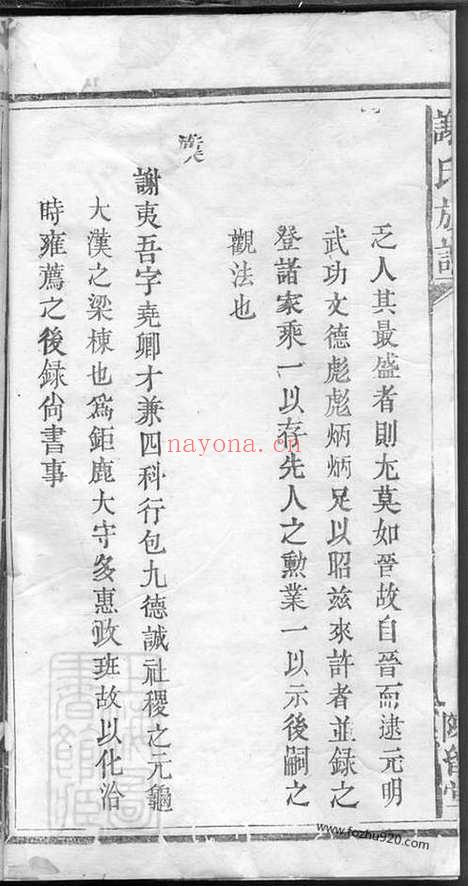 謝氏族譜
乏人其最盛者則尤莫如晉故自晉而逮元明
武功文德彪彪炳炳足以昭茲來許者並録之
登諸家乘一以存先人之勳業一以示後嗣之
觀法也
漢
謝夷吾字堯卿才兼四科行包九德誠社稷之元龜
大漢之梁棟也為鉅鹿大守多惠政班故以化洽
時雍薦之後録尙書事
nayona.cn
www.fozhu920.com